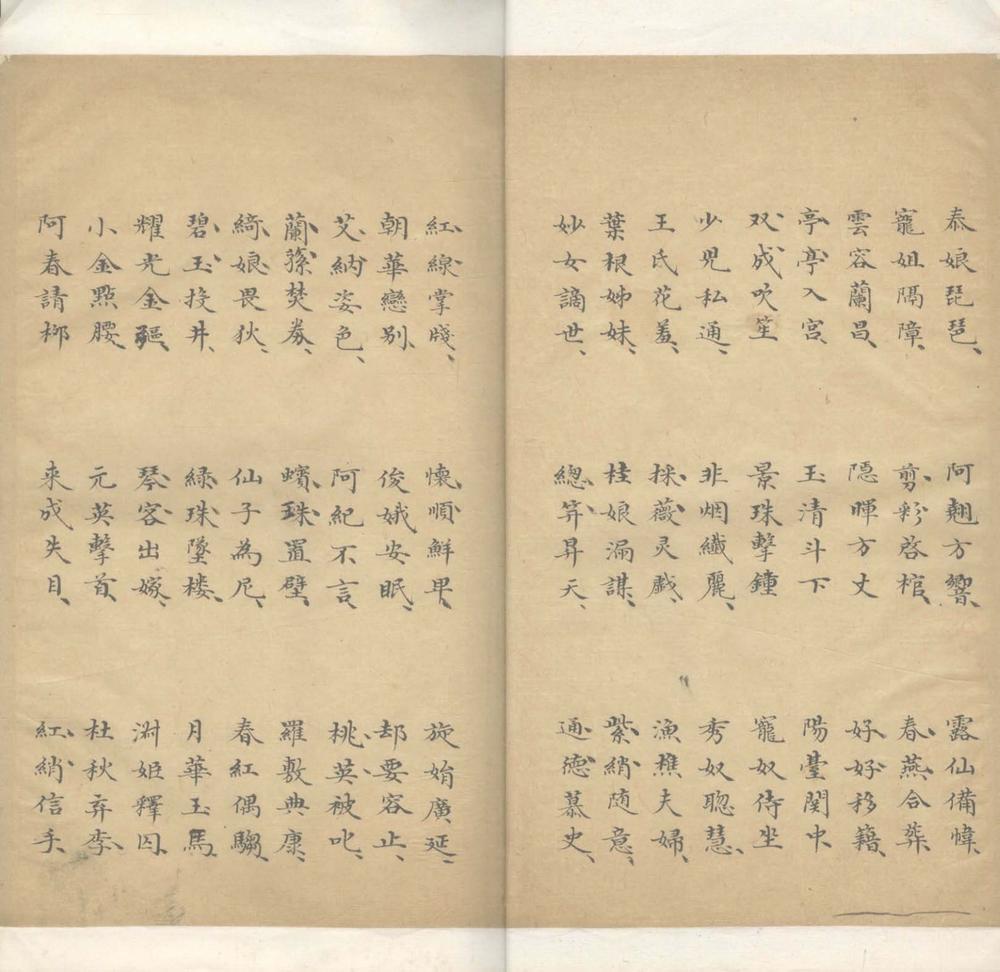 泰娘琵琶、 阿翹方響、 露仙備幃、
寵姐隔障、 剪彩啓棺、 春燕合葬、
雲容蘭昌、 隱暉方丈 好好移籍、
亭亭入宮、 玉清斗下 陽臺関中
双成吹笙 景珠擊鍾 寵奴侍坐
少児私通、 非烟纖麗、 秀奴聰慧、
王氏花羞、 採薇灵戲、 漁樵夫婦、
葉根姊妹、 桂娘漏謀、 紫綃随意、
妙女謫世、 總笄昇天、 通德慕史、
紅線掌牋、 懷順鮮卑、 旋娟廣延、
朝華戀別、 俊娥安眠、 却要容止、
艾納姿色、 阿紀不言、 桃英被叱、
蘭蓀焚券、 蠙珠置壁、 羅敷典康、
綺娘畏狄、 仙子為尼、 春紅偶騶、
碧玉投井、 綠珠墜楼、 月華玉馬、
耀光金驅、 琴客出嫁、 渊姬釋囚、
小金點腰、 元英擊首、 杜秋弃李、
阿春請 来成失目、 紅綃信手、